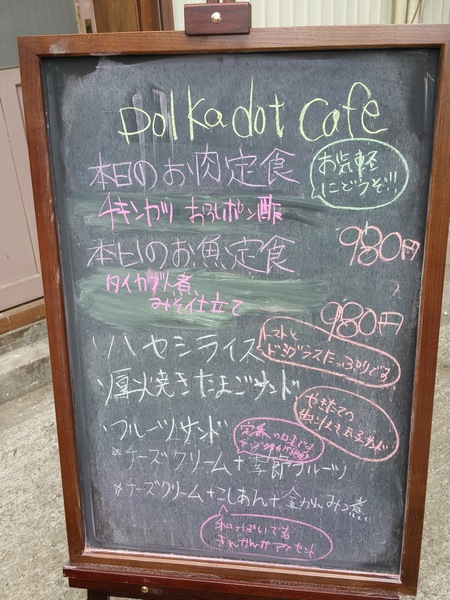 polkadot cafe
お気軽
にどうぞ!!
本日のお肉定食
チキンカツ おろしポン酢
980円
本日のお魚定食
タイカブト煮
みそ仕立て
980円
ハヤシライス
トマトと
ドミグラスたっぷりです
厚焼きたまごサンド
やきたての
フルーツサンド
定番の
*チーズクリーム+季節フルーツ
*チーズクリーム+こしあん+金かんみつ煮
和っぽいです
きんかんがアクセント